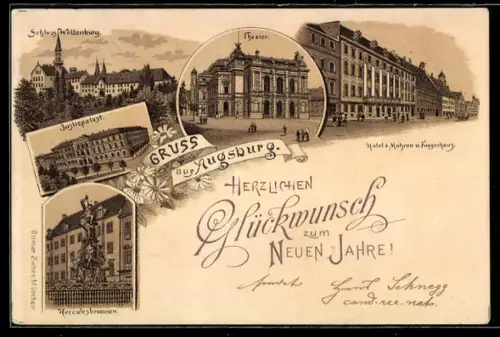 Schloss Wöllenburg.
Theater.
Justizpalast.
GRUSS
aus Augsburg.
Hotel 3 Mohren u. Fuggerhaus.
HERZLICHEN
Glückwunsch
zum
NEUEN JAHRE!
sendet Hans Schnegg
cand. rer. nat.
Herculesbrunnen.
Ottmar Zieher, München